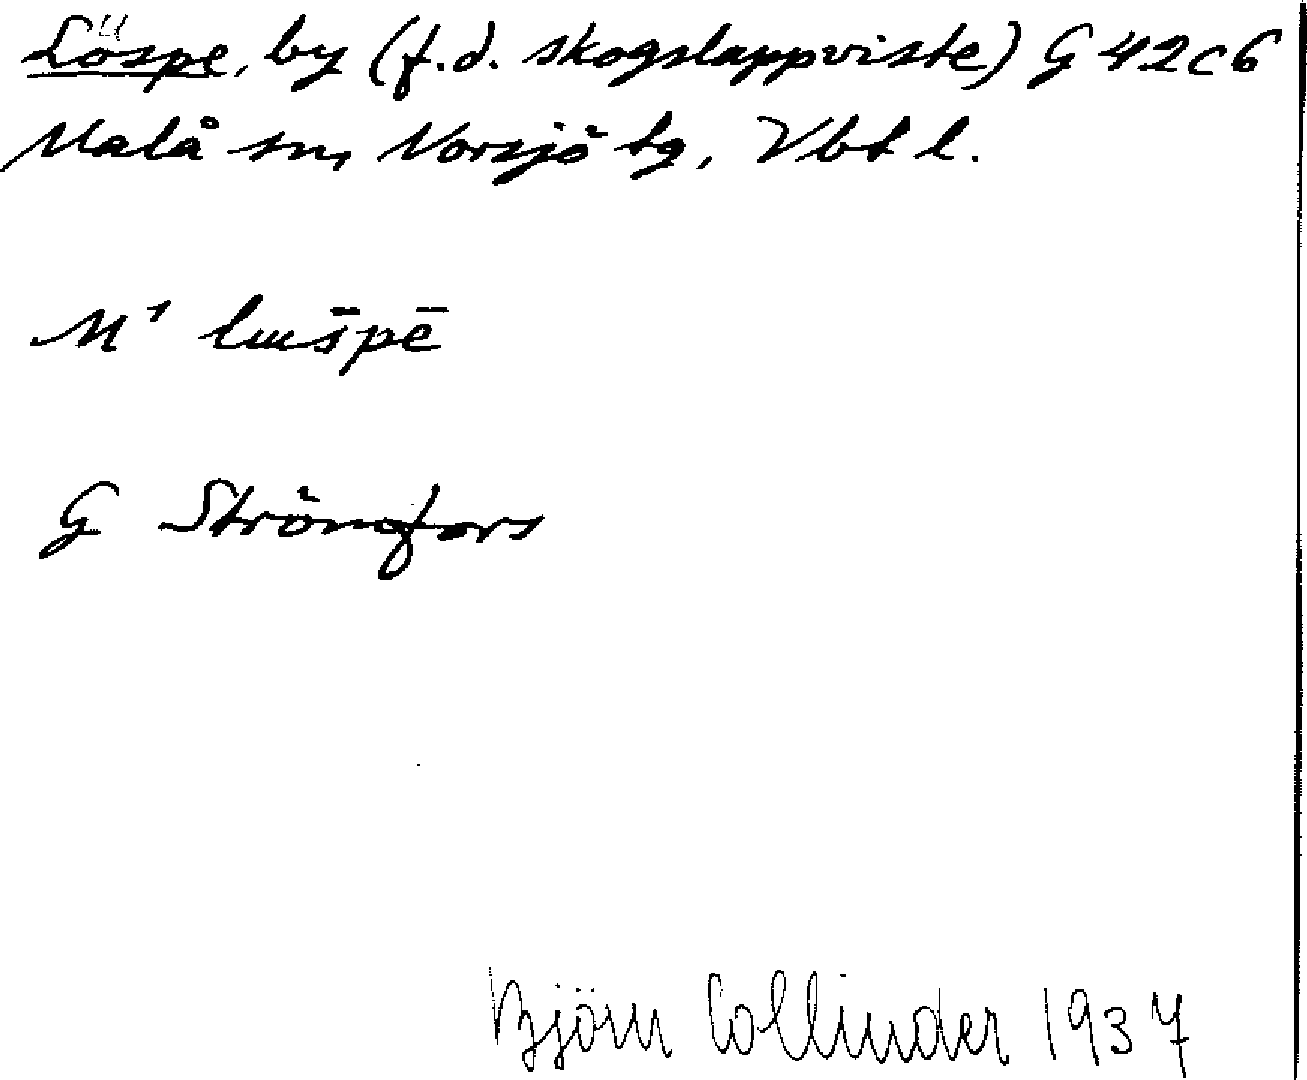 Löspe, by (f.d. skogslappviste) G 42c6
Malå sn, Norsjö tg, Vbt l.
M¹ luušpē
G Strömfors
Björn Collinder 1937